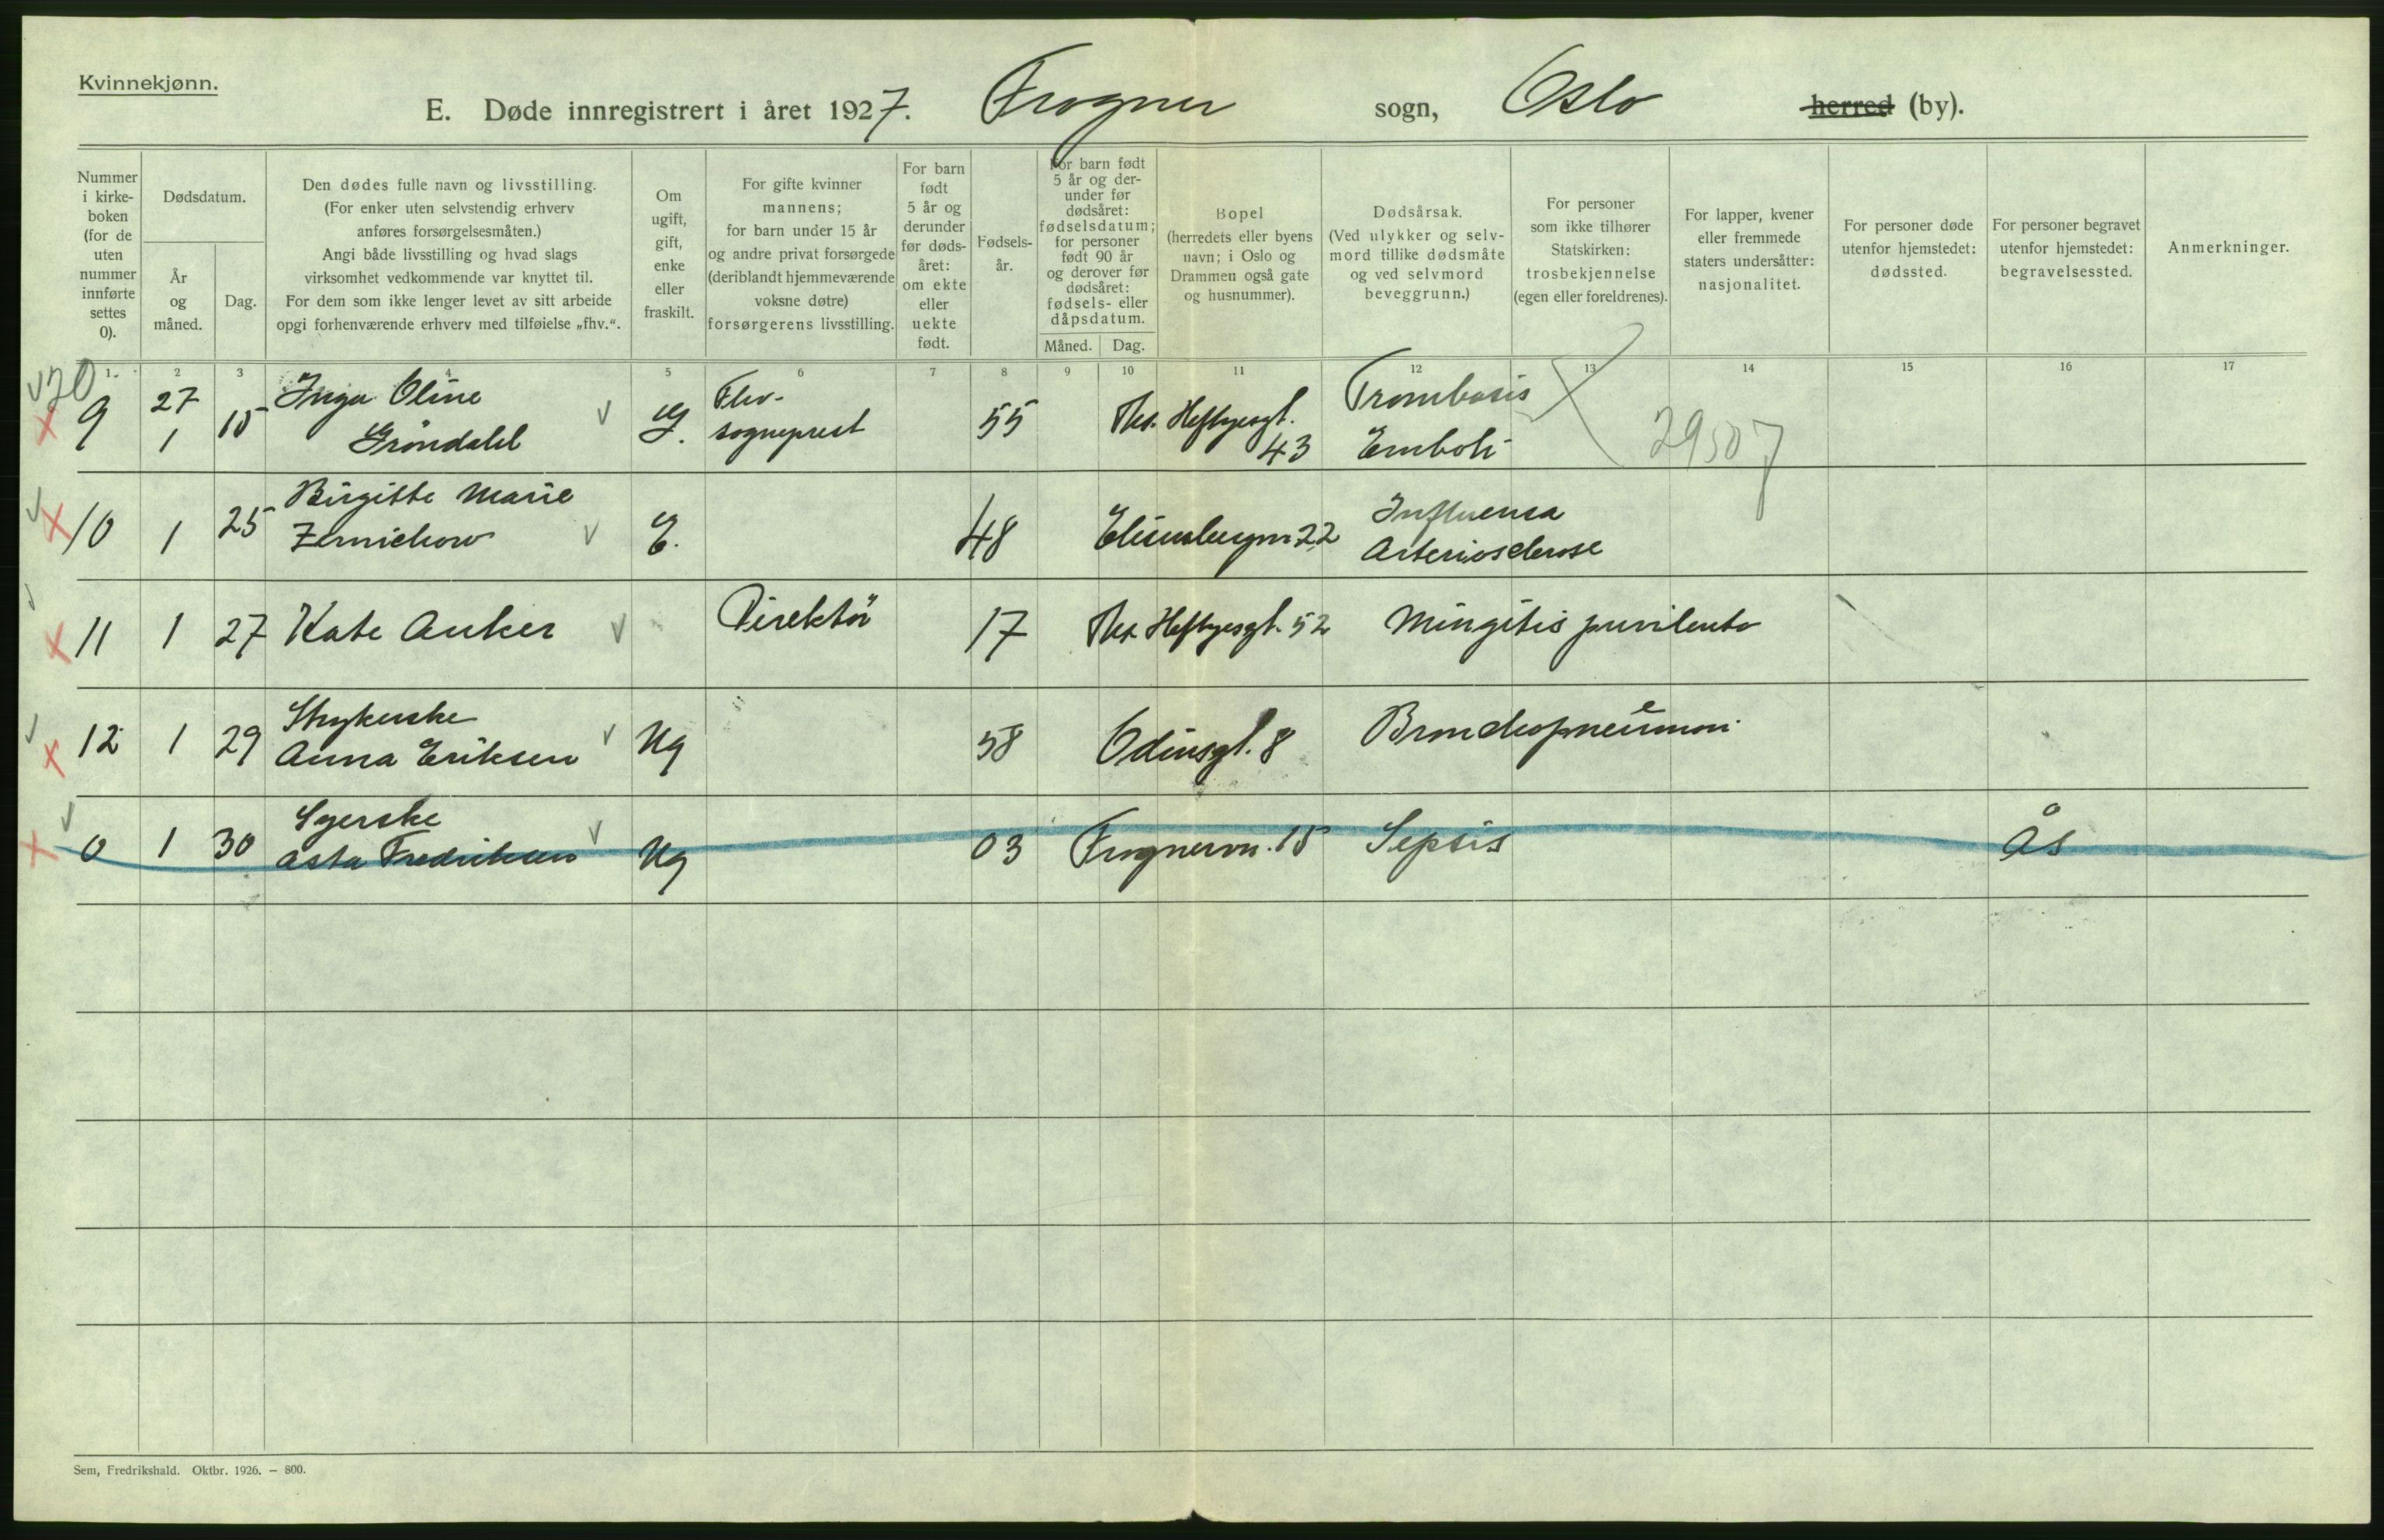 Kvinnekjønn.
E. Døde innregistrert i året 1927. Frogner sogn, Oslo herred (by).
Nummer i kirke-boken (for de uten nummer innførte settes 0).
Dødsdatum.
År og måned.
Dag.
Den dødes fulle navn og livsstilling.
(For enker uten selvstendig erhverv
anføres forsørgelsesmåten.)
Angi både livsstilling og hvad slags
virksomhet vedkommende var knyttet til.
For dem som ikke lenger levet av sitt arbeide
opgi forhenværende erhverv med tilføielse „fhv.“.
Om
ugift,
gift,
enke
eller
fraskilt.
For gifte kvinner
mannens;
for barn under 15 år
og andre privat forsørgede
(deriblandt hjemmeværende
voksne døtre)
forsørgerens livsstilling.
For barn
født
5 år og
derunder
før døds-
året:
om ekte
eller
uekte
født.
Fødsels-
år.
For barn født
5 år og der-
under før
dødsåret:
fødselsdatum;
for personer
født 90 år
og derover før
dødsåret:
fødsels- eller
dåpsdatum.
Måned. Dag.
Bopel
(herredets eller byens
navn; i Oslo og
Drammen også gate
og husnummer).
Dødsårsak.
(Ved ulykker og selv-
mord tillike dødsmåte
og ved selvmord
beveggrunn.)
For personer
som ikke tilhører
Statskirken:
trosbekjennelse
(egen eller foreldrenes).
For lapper, kvener
eller fremmede
staters undersåtter:
nasjonalitet.
For personer døde
utenfor hjemstedet:
dødssted.
For personer begravet
utenfor hjemstedet:
begravelsessted.
Anmerkninger.
1. 2 3 4 5 6 7 8 9 10 11 12 13 14 15 16 17
9 27 1 15 Inga Oline Gröndahl G. Fhv. sogneprest 55 Ths. Heftyesgt. 43 Trombosis Emboli 29507
10 1 25 Birgitte Marie Zernichow E. 48 22 Influensa Arteriosclerose
11 1 27 Kate Anker Direktör 17 Ths. Heftyesgt. 52 Mingitis purilenta
12 1 29 Strykerske Anna Eriksen Ug 58 Odinsgt. 8 Bronchopneumoni
0 1 30 Syerske Asta Fredriksen Ug 03 Frognervn. 15 Sepsis Ås
Sem, Fredrikshald. Oktbr. 1926. — 800.